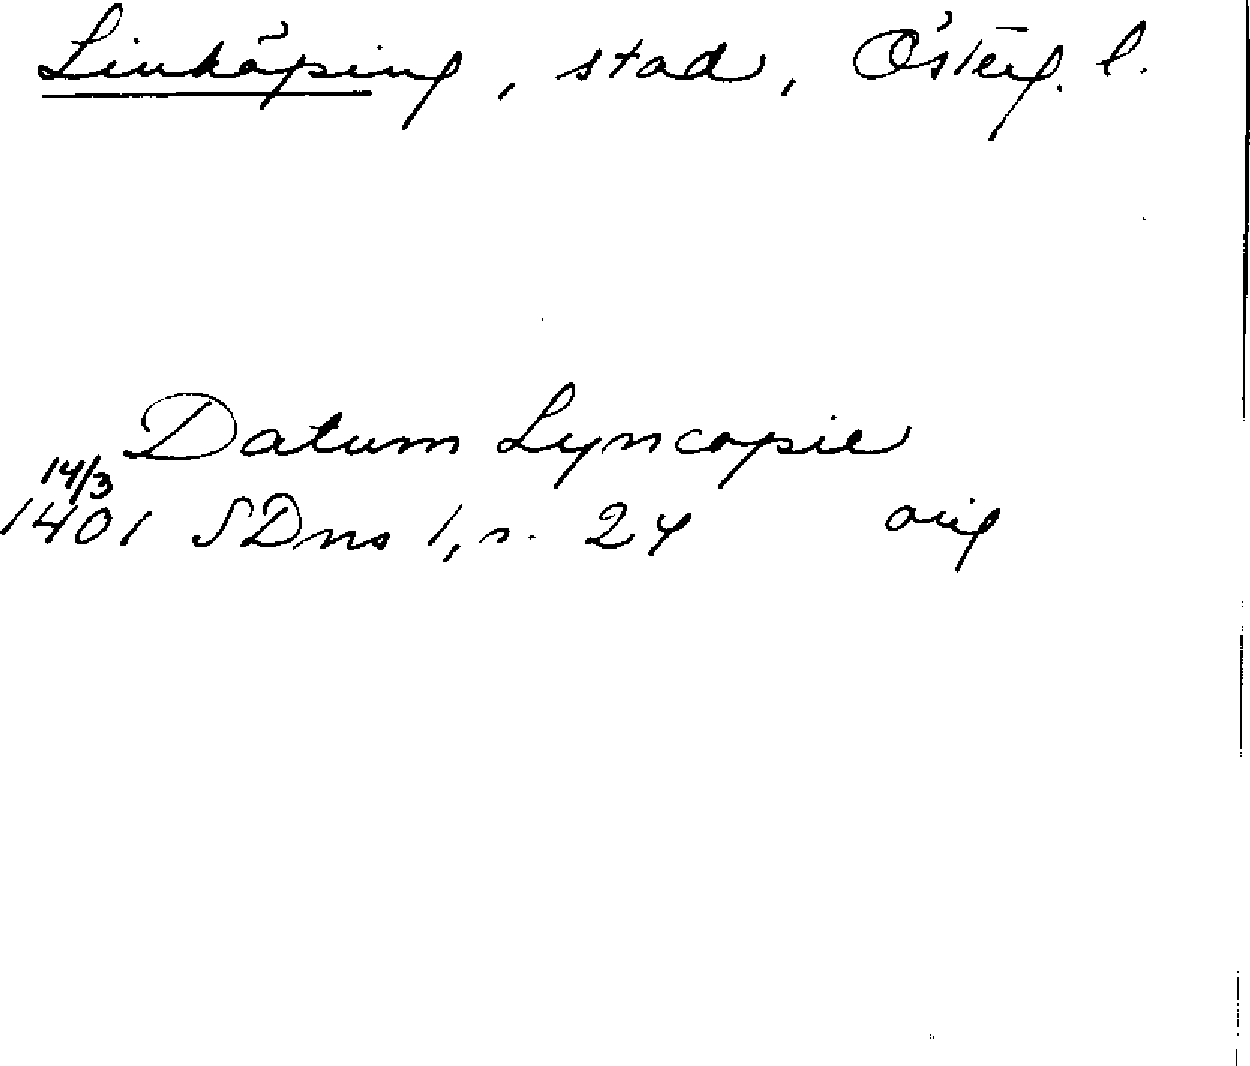 Linköping, stad, Österg. l.
Datum Lyncopie
14/3
1401 SDns 1, s. 24 orig